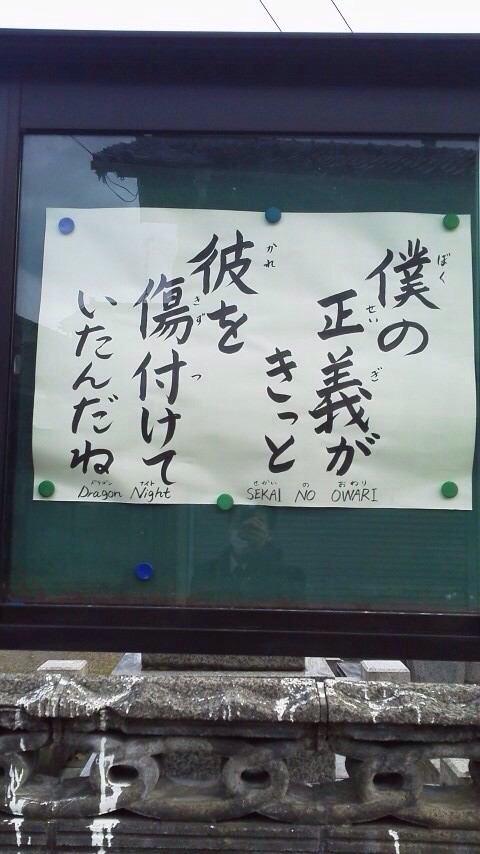 僕の
正義が
きっと
彼を
傷付けて
いたんだね
ぼく
せい ぎ
かれ
きず つ
SEKAI NO OWARI
せかい の おわり
Dragon Night
ドラゴン ナイト